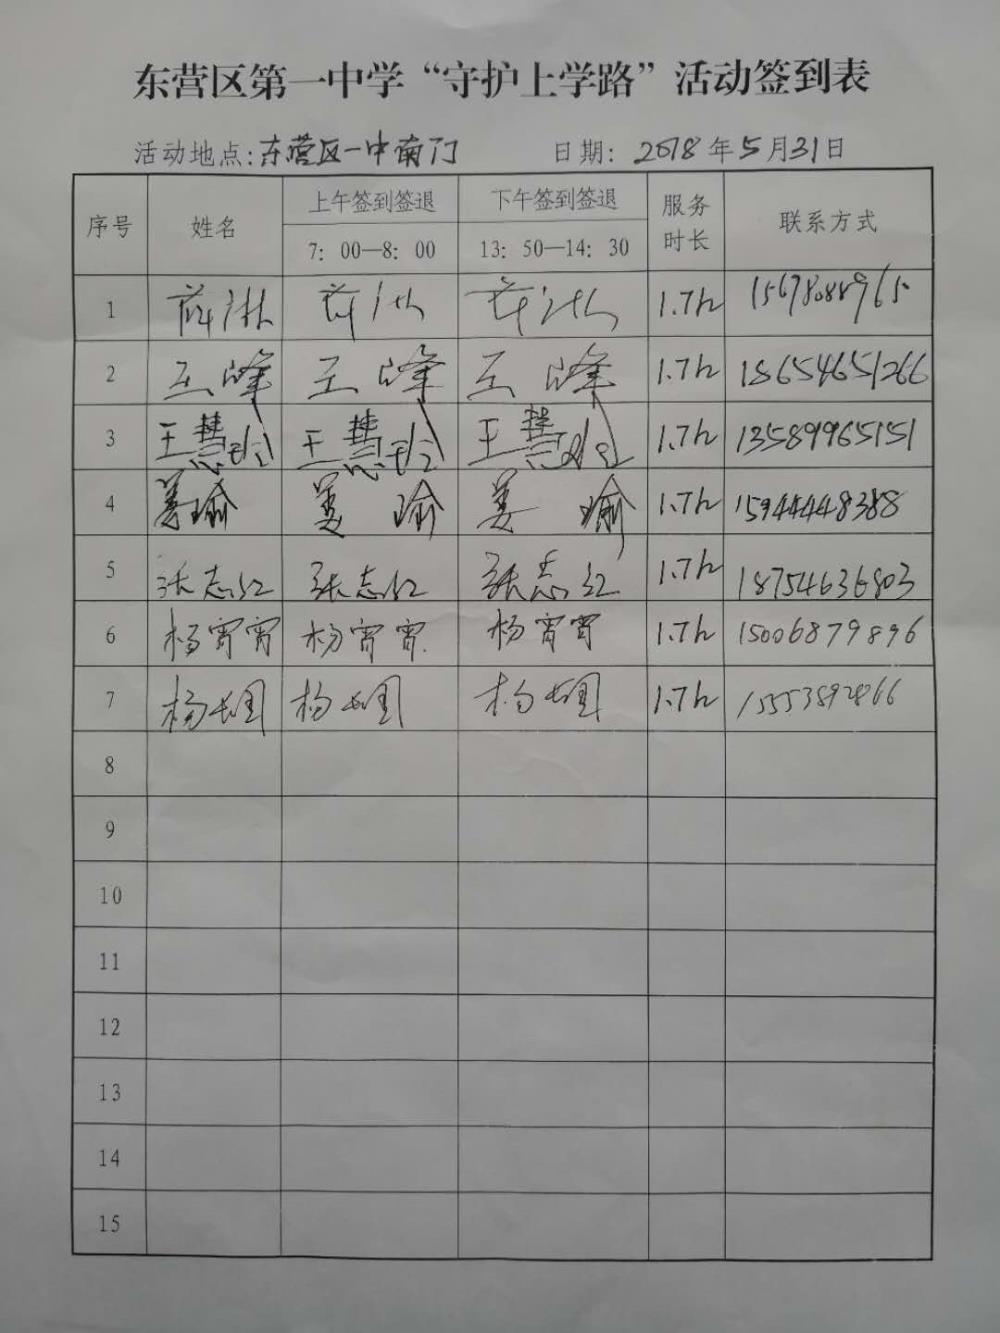 东营区第一中学“守护上学路”活动签到表
活动地点:东营区一中南门 日期: 2018年5月31日
序号 姓名 上午签到签退 下午签到签退 服务时长 联系方式
7: 00—8: 00 13: 50—14: 30
1 1.7h 15678088965
2 王峰 王峰 王峰 1.7h 18654651266
3 王慧玲 王慧玲 王慧玲 1.7h 13589965151
4 姜瑜 姜瑜 姜瑜 1.7h 15944448388
5 张志红 张志红 张志红 1.7h 18754636803
6 杨宵宵 杨宵宵 杨宵宵 1.7h 15006879896
7 杨 杨 杨 1.7h
8
9
10
11
12
13
14
15